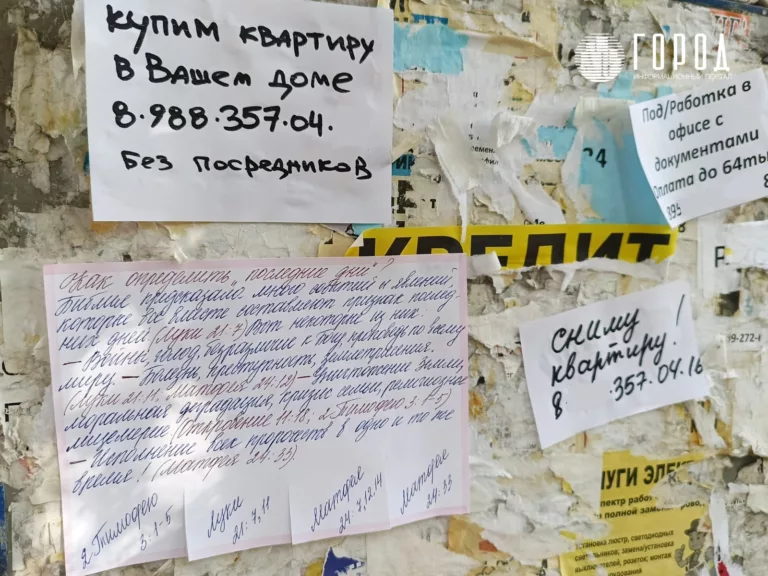 Купим квартиру
в Вашем доме
8.988.357.04.
Без посредников
ГОРОД
ИНФОРМАЦИОННЫЙ ПОРТАЛ
Под/Работка в
офисе с
документами
Оплата до 64ты
КРЕДИТ
Как определить „последние дни"?
Библия предсказала много событий и явлений,
которые все вместе составляют признак послед-
них дней (Луки 21:7) Вот некоторые из них:
— Войны, голод, безразличие к
миру. — Болезни, преступность, землетрясения.
(Луки 21:11, Матфея 24:12) — Уничтожение Земли,
моральная деградация, кризис семьи, религиозное
лицемерие (Откровение 11:18; 2 Тимофею 3:1-5)
— Исполнение всех пророчеств в одно и то же
время! (Матфея 24:33)
2 Тимофею
3:1-5
Луки
21:7,11
Матфея
24:7,12,14
Матфея
24:33
сниму
квартиру!
8 .357.04.16
99-272-
УГИ ЭЛЕ
пектр рабо
полной заме
Установка люстр, светодиодных
светильников; замена/установка
выключателей, розеток; монтаж